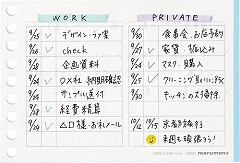 WORK
9/15 ✓ デザイン・ラフ案
9/16 ✓ check
9/18 企画資料
9/24 ✓ 〇×社 納期確認
9/24 サンプル送付
9/28 ✓ 経費精算
9/29 △□様・お礼メール
PRIVATE
9/20 食事会・お店予約
9/27 ✓ 家賃 振込み
9/24 マスク購入
9/25 ✓ クリーニング取りに行く
9/30 キッチンの大掃除
10/12 10/15 京都旅行
来週も頑張ろう!
marumano